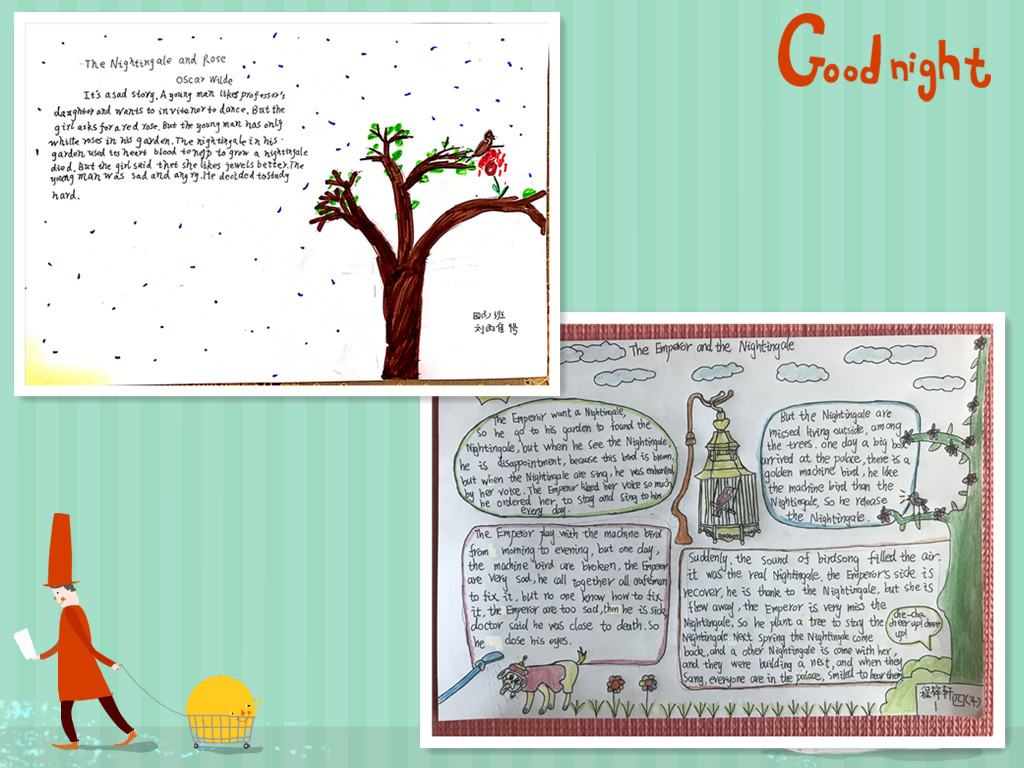 Good night
The Nightingale and Rose
Oscar Wilde
It's a sad story. A young man likes professor's
daughter and wants to invite her to dance. But the
girl asks for a red rose. But the young man has only
white roses in his garden. The nightingale in his
garden used its heart blood to help to grow a nightingale
died. But the girl said thet she likes jewels better. The
young man was sad and angry. He decided to study
hard.
The Emperor and the Nightingale
The Emperor want a Nightingale,
so he go to his garden to found the
Nightingale, but when he see the Nightingale,
he is disappointment, because this bird is brown,
but when the Nightingale are sing, he was enhanted
by her voice. The Emperor liked her voice so much
he ordered her, to stay and sing to him
every day.
But the Nightingale are
missed living outside, among
the trees. one day a big box
arrived at the palace, there is a
golden machine bird, he like
the machine bird than the
Nightingale, so he release
the Nightingale.
The Emperor play with the machine bird
from morning to evening, but one day,
the machine bird are broken, the Emperor
are very sad, he call together all craftsman
to fix it, but no one know how to fix
it, the Emperor are too sad, then he is sick
doctor said he was close to death. So
he close his eyes.
Suddenly, the sound of birdsong filled the air.
it was the real Nightingale, the Emperor's sick is
recover, he is thank to the Nightingale, but she is
flew away, the Emperor is very miss the
Nightingale, so he plant a tree to stay the
Nightingale. Next spring the Nightingale come
back, and a other Nightingale is come with her,
and they were building a nest, and when they
sang, everyone are in the palace, smiled to hear them
che-che,
cheer up! cheer
up!
程梓轩